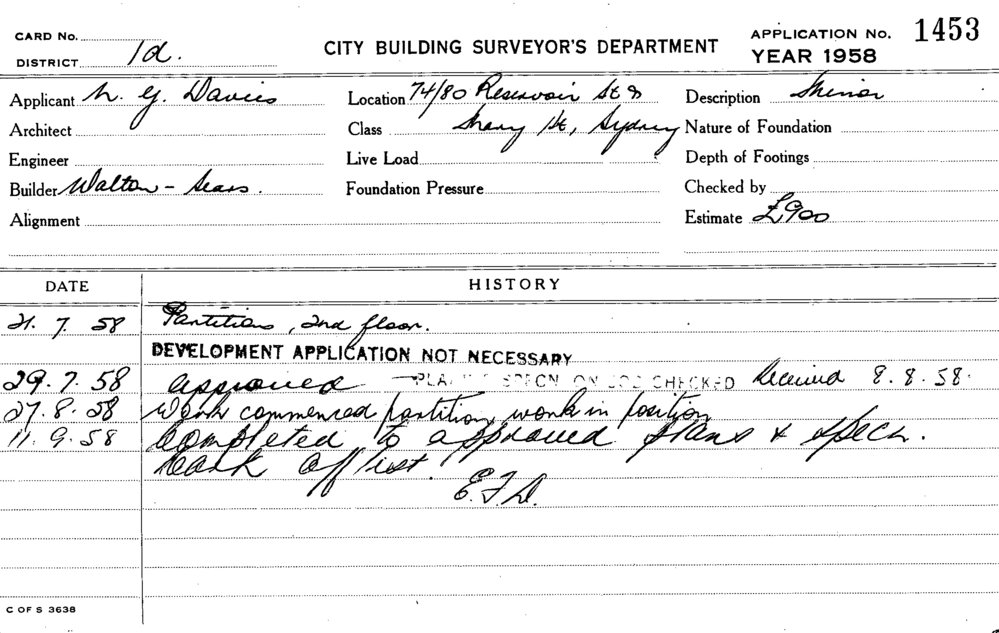 CARD No.
DISTRICT 1d.
CITY BUILDING SURVEYOR'S DEPARTMENT
APPLICATION No. 1453
YEAR 1958
Applicant N. G. Davies
Location 74/80 Reservoir St &
Description Minor
Architect
Class Mary St, Sydney
Nature of Foundation
Engineer
Live Load
Depth of Footings
Builder Walton - Sears.
Foundation Pressure
Checked by
Alignment
Estimate £900
DATE HISTORY
21. 7. 58 Partitions, 2nd floor.
DEVELOPMENT APPLICATION NOT NECESSARY
29. 7. 58 approved PLAN & SPECN ON JOB CHECKED Received 8. 8. 58.
27. 8. 58 Work commenced partition work in position
11. 9. 58 Completed to approved plans & specn.
Mark off list.
E.F.D.
C OF S 3638